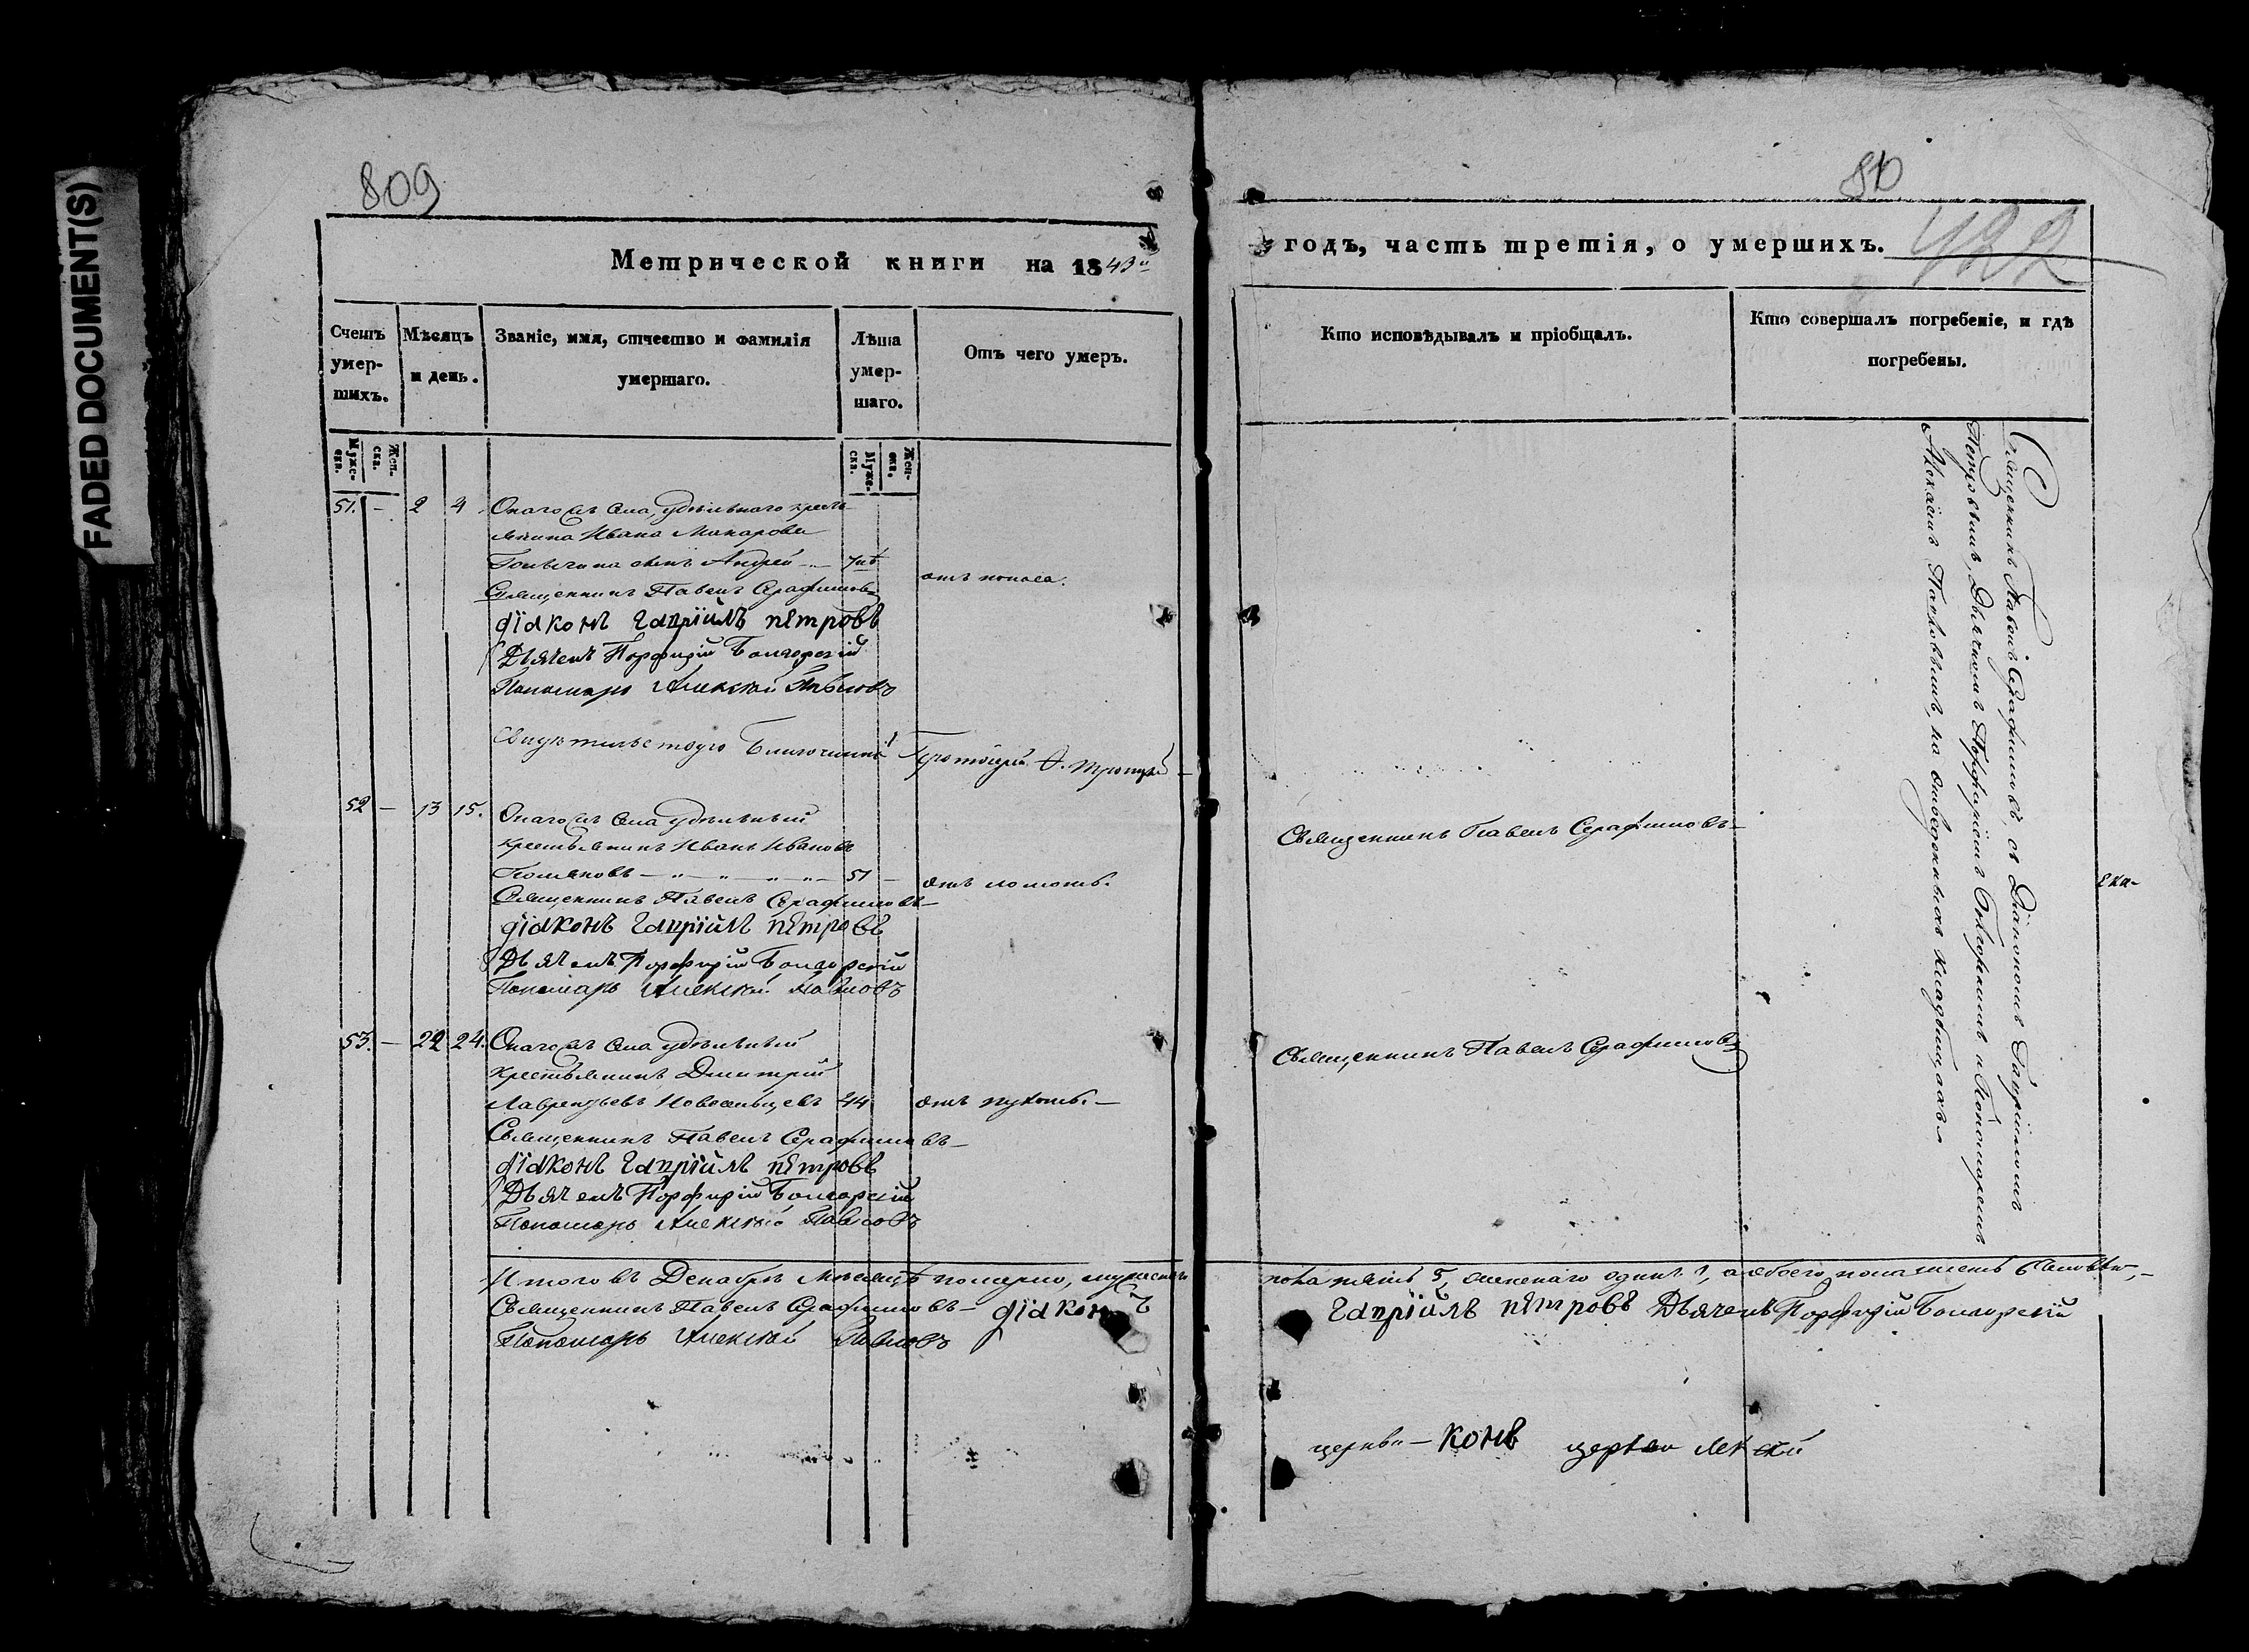 FADED DOCUMENT(S)
809
Метрической книги на 1843й
Счетъ умер- шихъ.
Мѣсяцъ и день.
Званіе, имя, отчество и фамилія умершаго.
Лѣта умер- шаго.
Отъ чего умеръ.
Муже- ска.
Жен- ска.
Муже- ска.
Жен- ска.
51. – 2 4 Онагожъ села, удѣльнаго кресть-
янина Ивана Макарова
сынъ Андрей
Священникъ Павелъ Серафимовъ
діаконъ Гавріилъ петровъ
Дьячекъ Порфирій
Пономарь Алексѣй Павловъ
Благочинный Протоіерей
52 – 13 15. Онагожъ села удѣльный
крестьянинъ Иванъ Ивановъ
Поляковъ – „ – „ – „ – „ – 51 –
Священникъ Павелъ Серафимовъ
діаконъ Гавріилъ петровъ
Дьячекъ Порфирій
Пономарь Алексѣй Павловъ
53. – 22 24. Онагожъ села удѣльный
крестьянинъ Дмитрій
Лаврентьевъ Новосельцевъ 44
Священникъ Павелъ Серафимовъ
діаконъ Гавріилъ петровъ
Дьячекъ Порфирій
Пономарь Алексѣй Павловъ
Итого въ Декабрѣ мѣсяцѣ померло, мужескаго
Священникъ Павелъ Серафимовъ – діаконъ
Пономарь Алексѣй Павловъ
810
422
годъ, часть третія, о умершихъ.
Кто исповѣдывалъ и пріобщалъ.
Кто совершалъ погребеніе, и гдѣ погребены.
Священникъ Павелъ Серафимовъ
Священникъ Павелъ Серафимовъ
Священникъ Павелъ Серафимовъ, съ Діакономъ Гавріиломъ
Петровымъ, Дьячкомъ Порфиріемъ и Пономаремъ
Алексѣемъ Павловымъ, на отведенномъ кладбищѣ
пола пять 5, женскаго одинъ 1, а обоего пола шесть 6
Гавріилъ петровъ Дьячекъ Порфирій
церкви – конъ